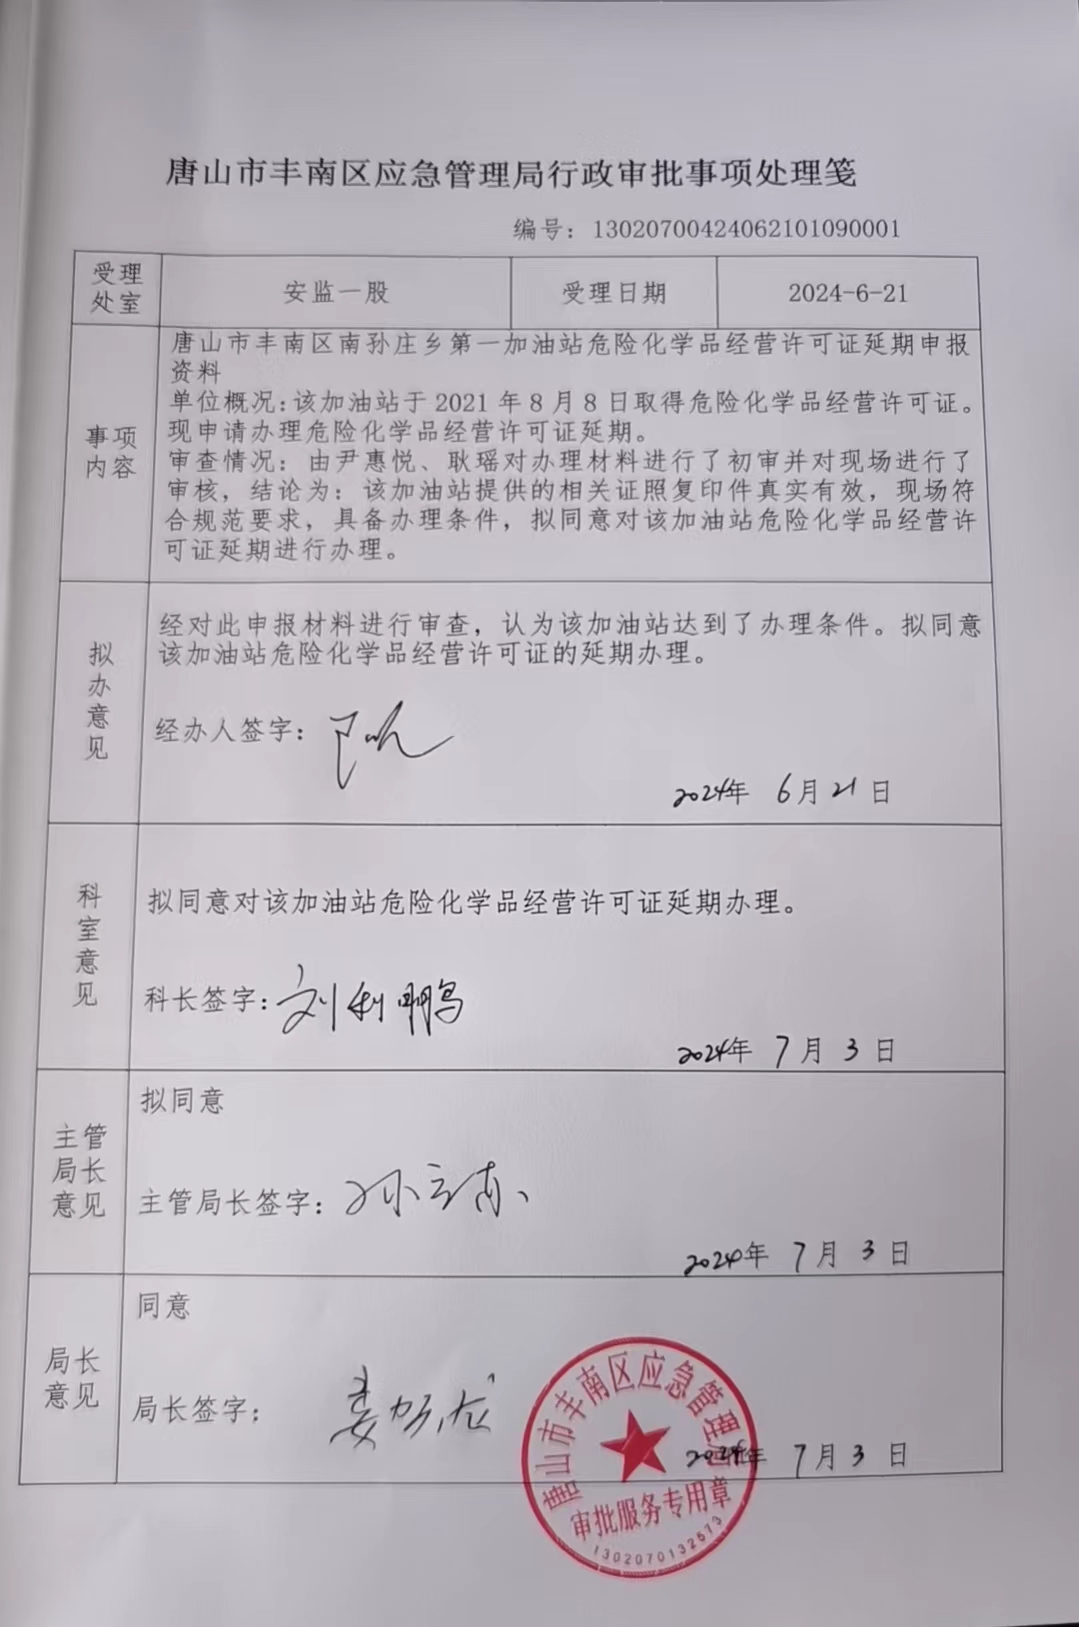 唐山市丰南区应急管理局行政审批事项处理笺
编号：13020700424062101090001
受理
处室
安监一股
受理日期
2024-6-21
事项
内容
唐山市丰南区南孙庄乡第一加油站危险化学品经营许可证延期申报
资料
单位概况：该加油站于 2021 年 8 月 8 日取得危险化学品经营许可证。
现申请办理危险化学品经营许可证延期。
审查情况：由尹惠悦、耿瑶对办理材料进行了初审并对现场进行了
审核，结论为：该加油站提供的相关证照复印件真实有效，现场符
合规范要求，具备办理条件，拟同意对该加油站危险化学品经营许
可证延期进行办理。
拟
办
意
见
经对此申报材料进行审查，认为该加油站达到了办理条件。拟同意
该加油站危险化学品经营许可证的延期办理。
经办人签字：
2024年 6月 21日
科
室
意
见
拟同意对该加油站危险化学品经营许可证延期办理。
科长签字：刘利鹏
2024年 7月 3日
主管
局长
意见
拟同意
主管局长签字：孙立
2024年 7月 3日
局长
意见
同意
局长签字：
2024年 7月 3日
唐山市丰南区应急管理局
审批服务专用章
1302070132573